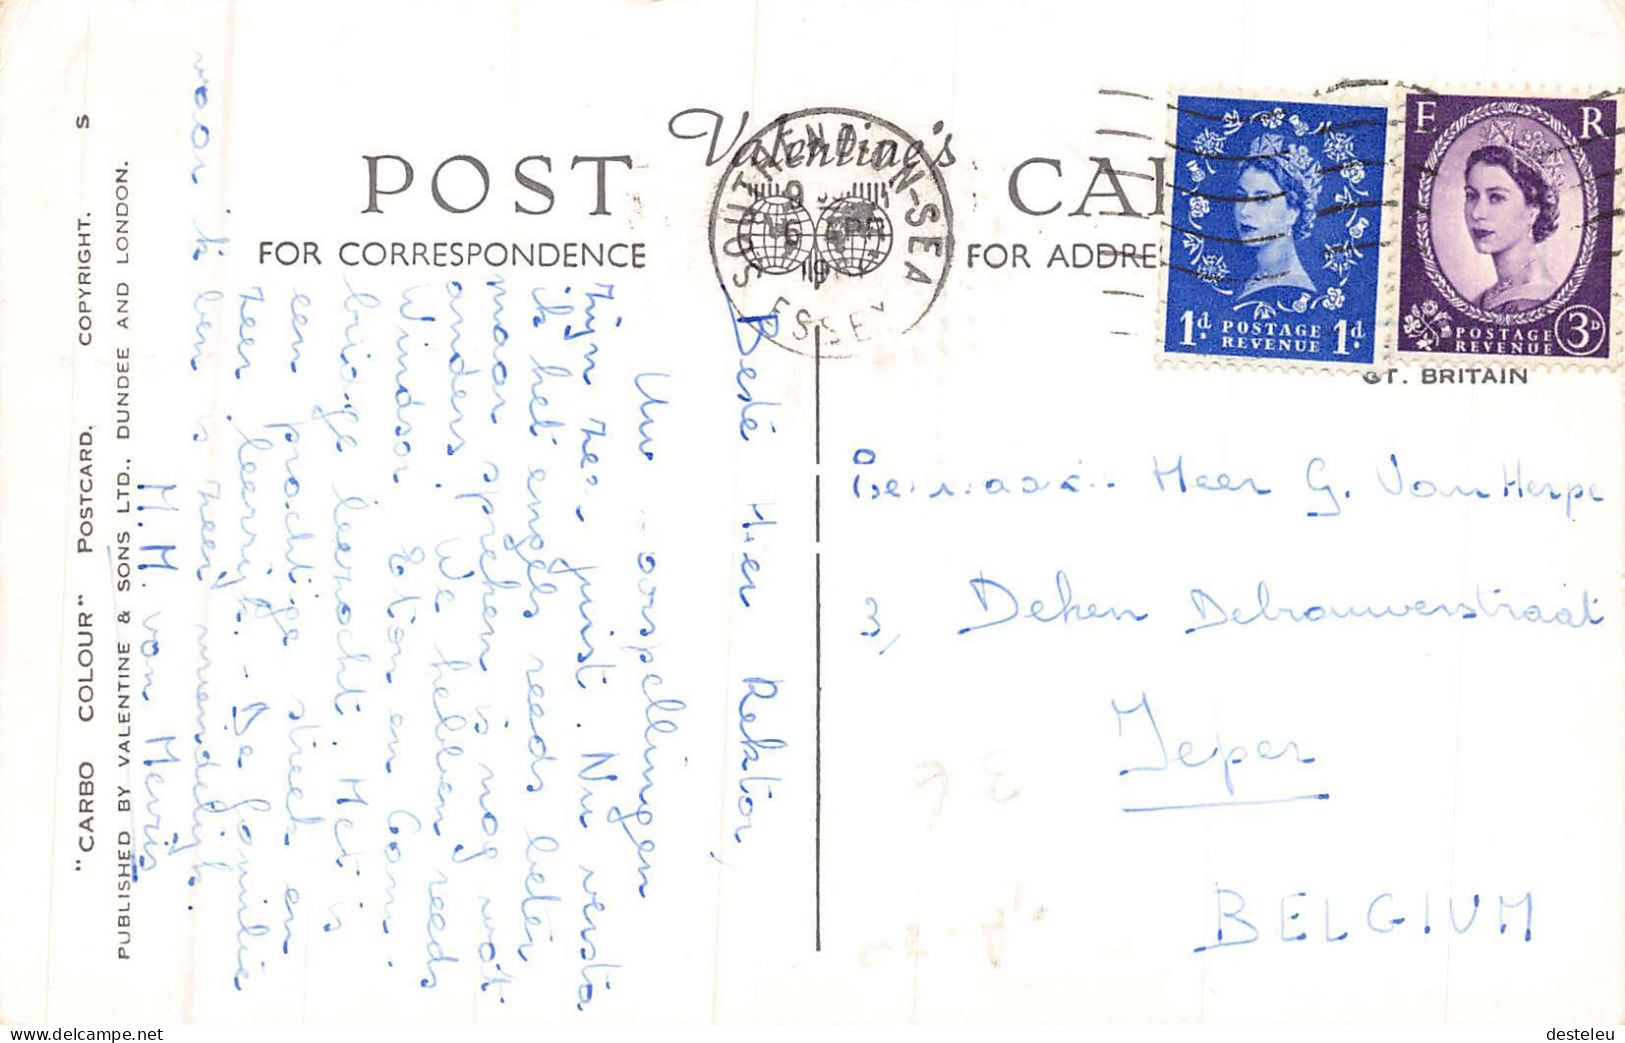 POST
Valentine's
FOR CORRESPONDENCE
FOR ADDRE
SOUTHEND-ON-SEA
ESSEX
E R
1d POSTAGE REVENUE 1d
POSTAGE REVENUE 3D
GT. BRITAIN
"CARBO COLOUR" POSTCARD. COPYRIGHT. S
PUBLISHED BY VALENTINE & SONS LTD., DUNDEE AND LONDON.
Beste Heer Rektor,
Uw
zijn zeer juist. Nu versta
ik het engels reeds beter
maar spreken is nog wat
anders. We hebben reeds
Windsor Eton en Cam-
bridge bezocht. Het is
een prachtige streek en
zeer leerrijk. - De familie
waar ik ben is zeer vriendelijk.
M.M. van
Heer G. Van Herpe
3, Deken Debrouwerstraat
Ieper
BELGIUM
delcampe.net
desteleu